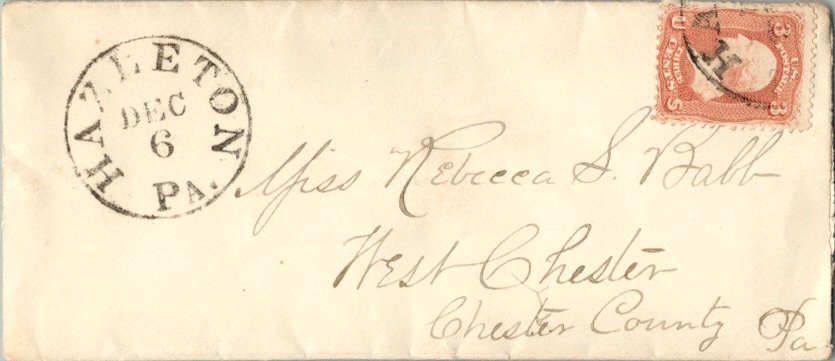 HAZLETON
DEC
6
PA.
HA
U
3
U.S.
POSTAGE
THREE
CENTS
S
3
Miss Rebecca S. Babb
West Chester
Chester County Pa